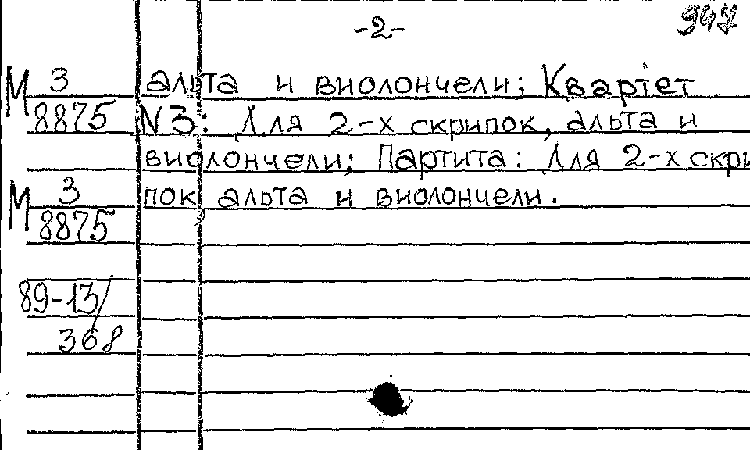 -2-
947
М 3 альта и виолончели; Квартет
8875 N3: Для 2-х скрипок, альта и
виолончели; Партита: Для 2-х скри
М 3 пок, альта и виолончели.
8875
89-13/
368